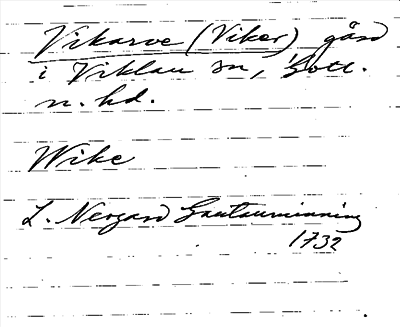 Vikarve (Viker) gård
i Viklau sn, Gotl.
n. hd.
Wike
L. Nergard Gautauminning
1732